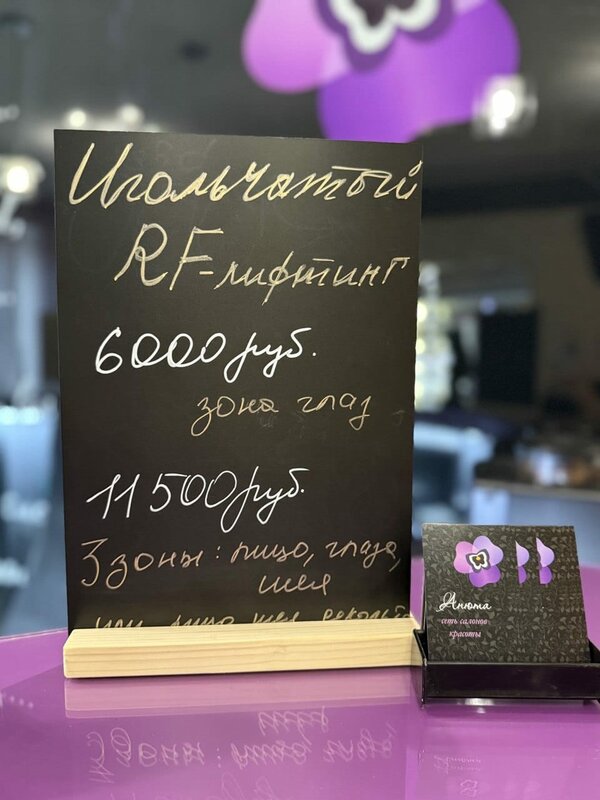 Игольчатый
RF-лифтинг
6000 руб.
зона глаз
11500 руб.
3 зоны: лицо, глаза,
шея
или лицо шея декольте
Анюта
сеть салонов
красоты